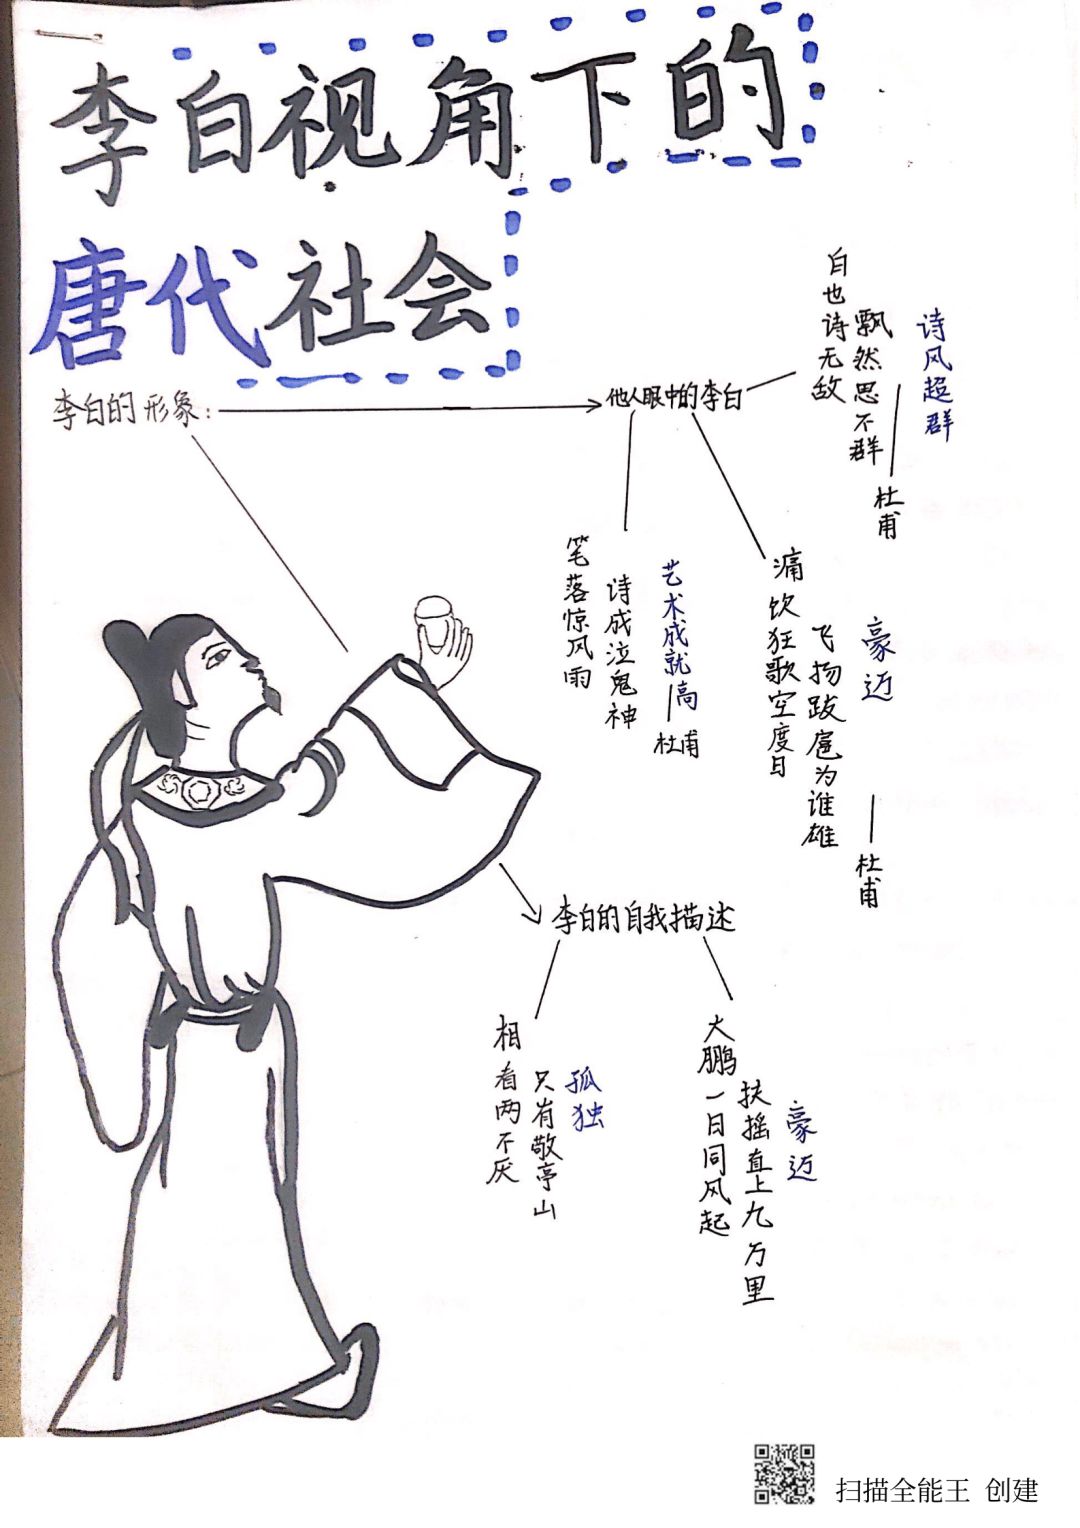 李白视角下的
唐代社会
李白的形象：
他人眼中的李白
自也诗无敌
飘然思不群
——杜甫
诗风超群
笔落惊风雨
诗成泣鬼神
艺术成就高
—杜甫
痛饮狂歌空度日
飞扬跋扈为谁雄
——杜甫
豪迈
李白的自我描述
相看两不厌
只有敬亭山
孤独
大鹏一日同风起
扶摇直上九万里
豪迈
扫描全能王 创建